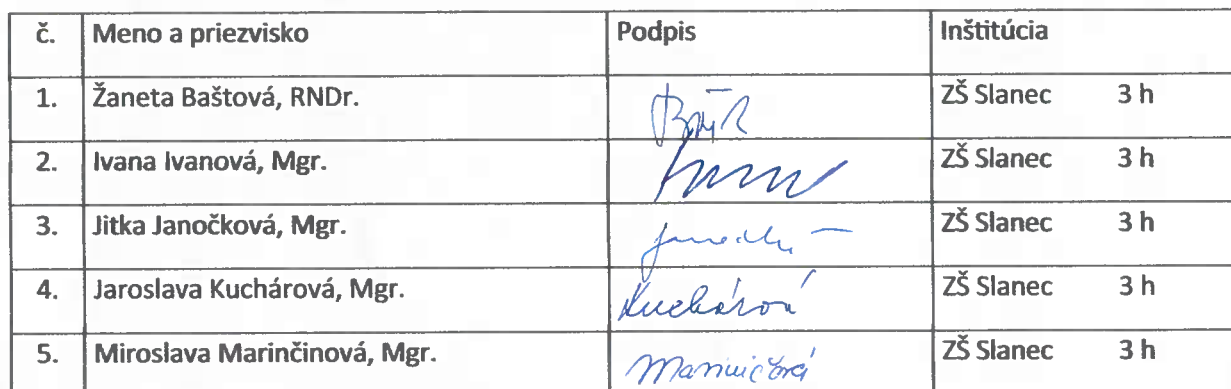 č. Meno a priezvisko Podpis Inštitúcia
1. Žaneta Baštová, RNDr. ZŠ Slanec 3 h
2. Ivana Ivanová, Mgr. ZŠ Slanec 3 h
3. Jitka Janočková, Mgr. ZŠ Slanec 3 h
4. Jaroslava Kuchárová, Mgr. Kuchárová ZŠ Slanec 3 h
5. Miroslava Marinčinová, Mgr. ZŠ Slanec 3 h